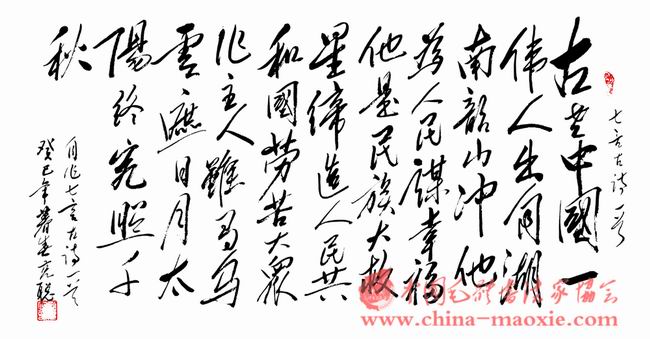 七言古诗一首
古老中國一
伟人出自湖
南韶山冲他
為人民謀幸福
他是民族大救
星缔造人民共
和國劳苦大眾
作主人雖有烏
雲遮日月太
陽终究照千
秋
自作七言古诗一首
癸巳年暮春
中国毛体書法家協会
www.china-maoxie.com